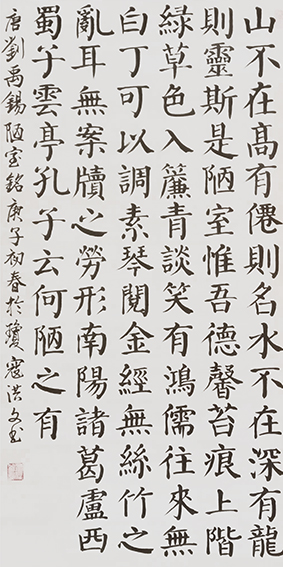 山不在高有僊則名水不在深有龍
則靈斯是陋室惟吾德馨苔痕上階
綠草色入簾青談笑有鴻儒往來無
白丁可以調素琴閱金經無絲竹之
亂耳無案牘之勞形南陽諸葛盧西
蜀子雲亭孔子云何陋之有
唐劉禹錫陋室銘庚子初春於瓊寇洪文書